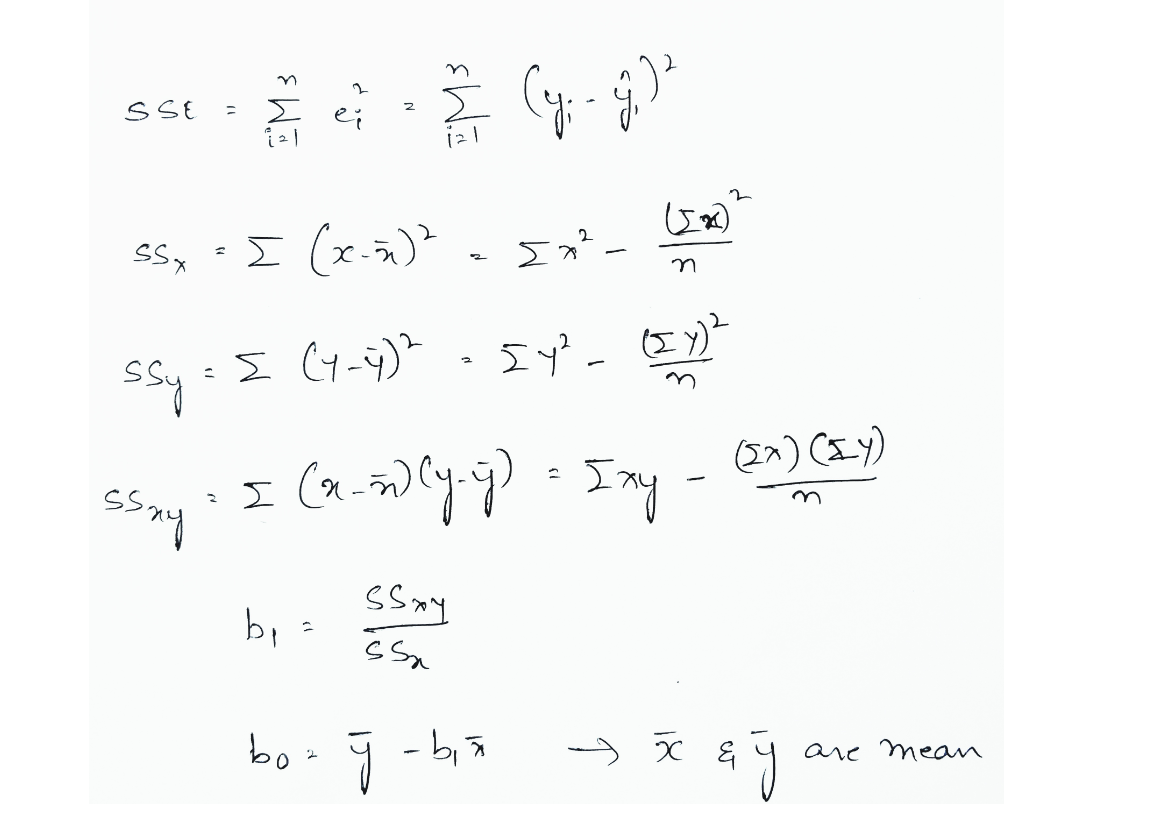 SSE = Σ_{i=1}^{n} e_i² = Σ_{i=1}^{n} (y_i - ŷ_i)²
SS_x = Σ (x-x̄)² = Σx² - (Σx)²/n
SS_y = Σ (y-ȳ)² = Σy² - (Σy)²/n
SS_xy = Σ (x-x̄)(y-ȳ) = Σxy - (Σx)(Σy)/n
b₁ = SS_xy/SS_x
b₀ = ȳ - b₁x̄ → x̄ & ȳ are mean